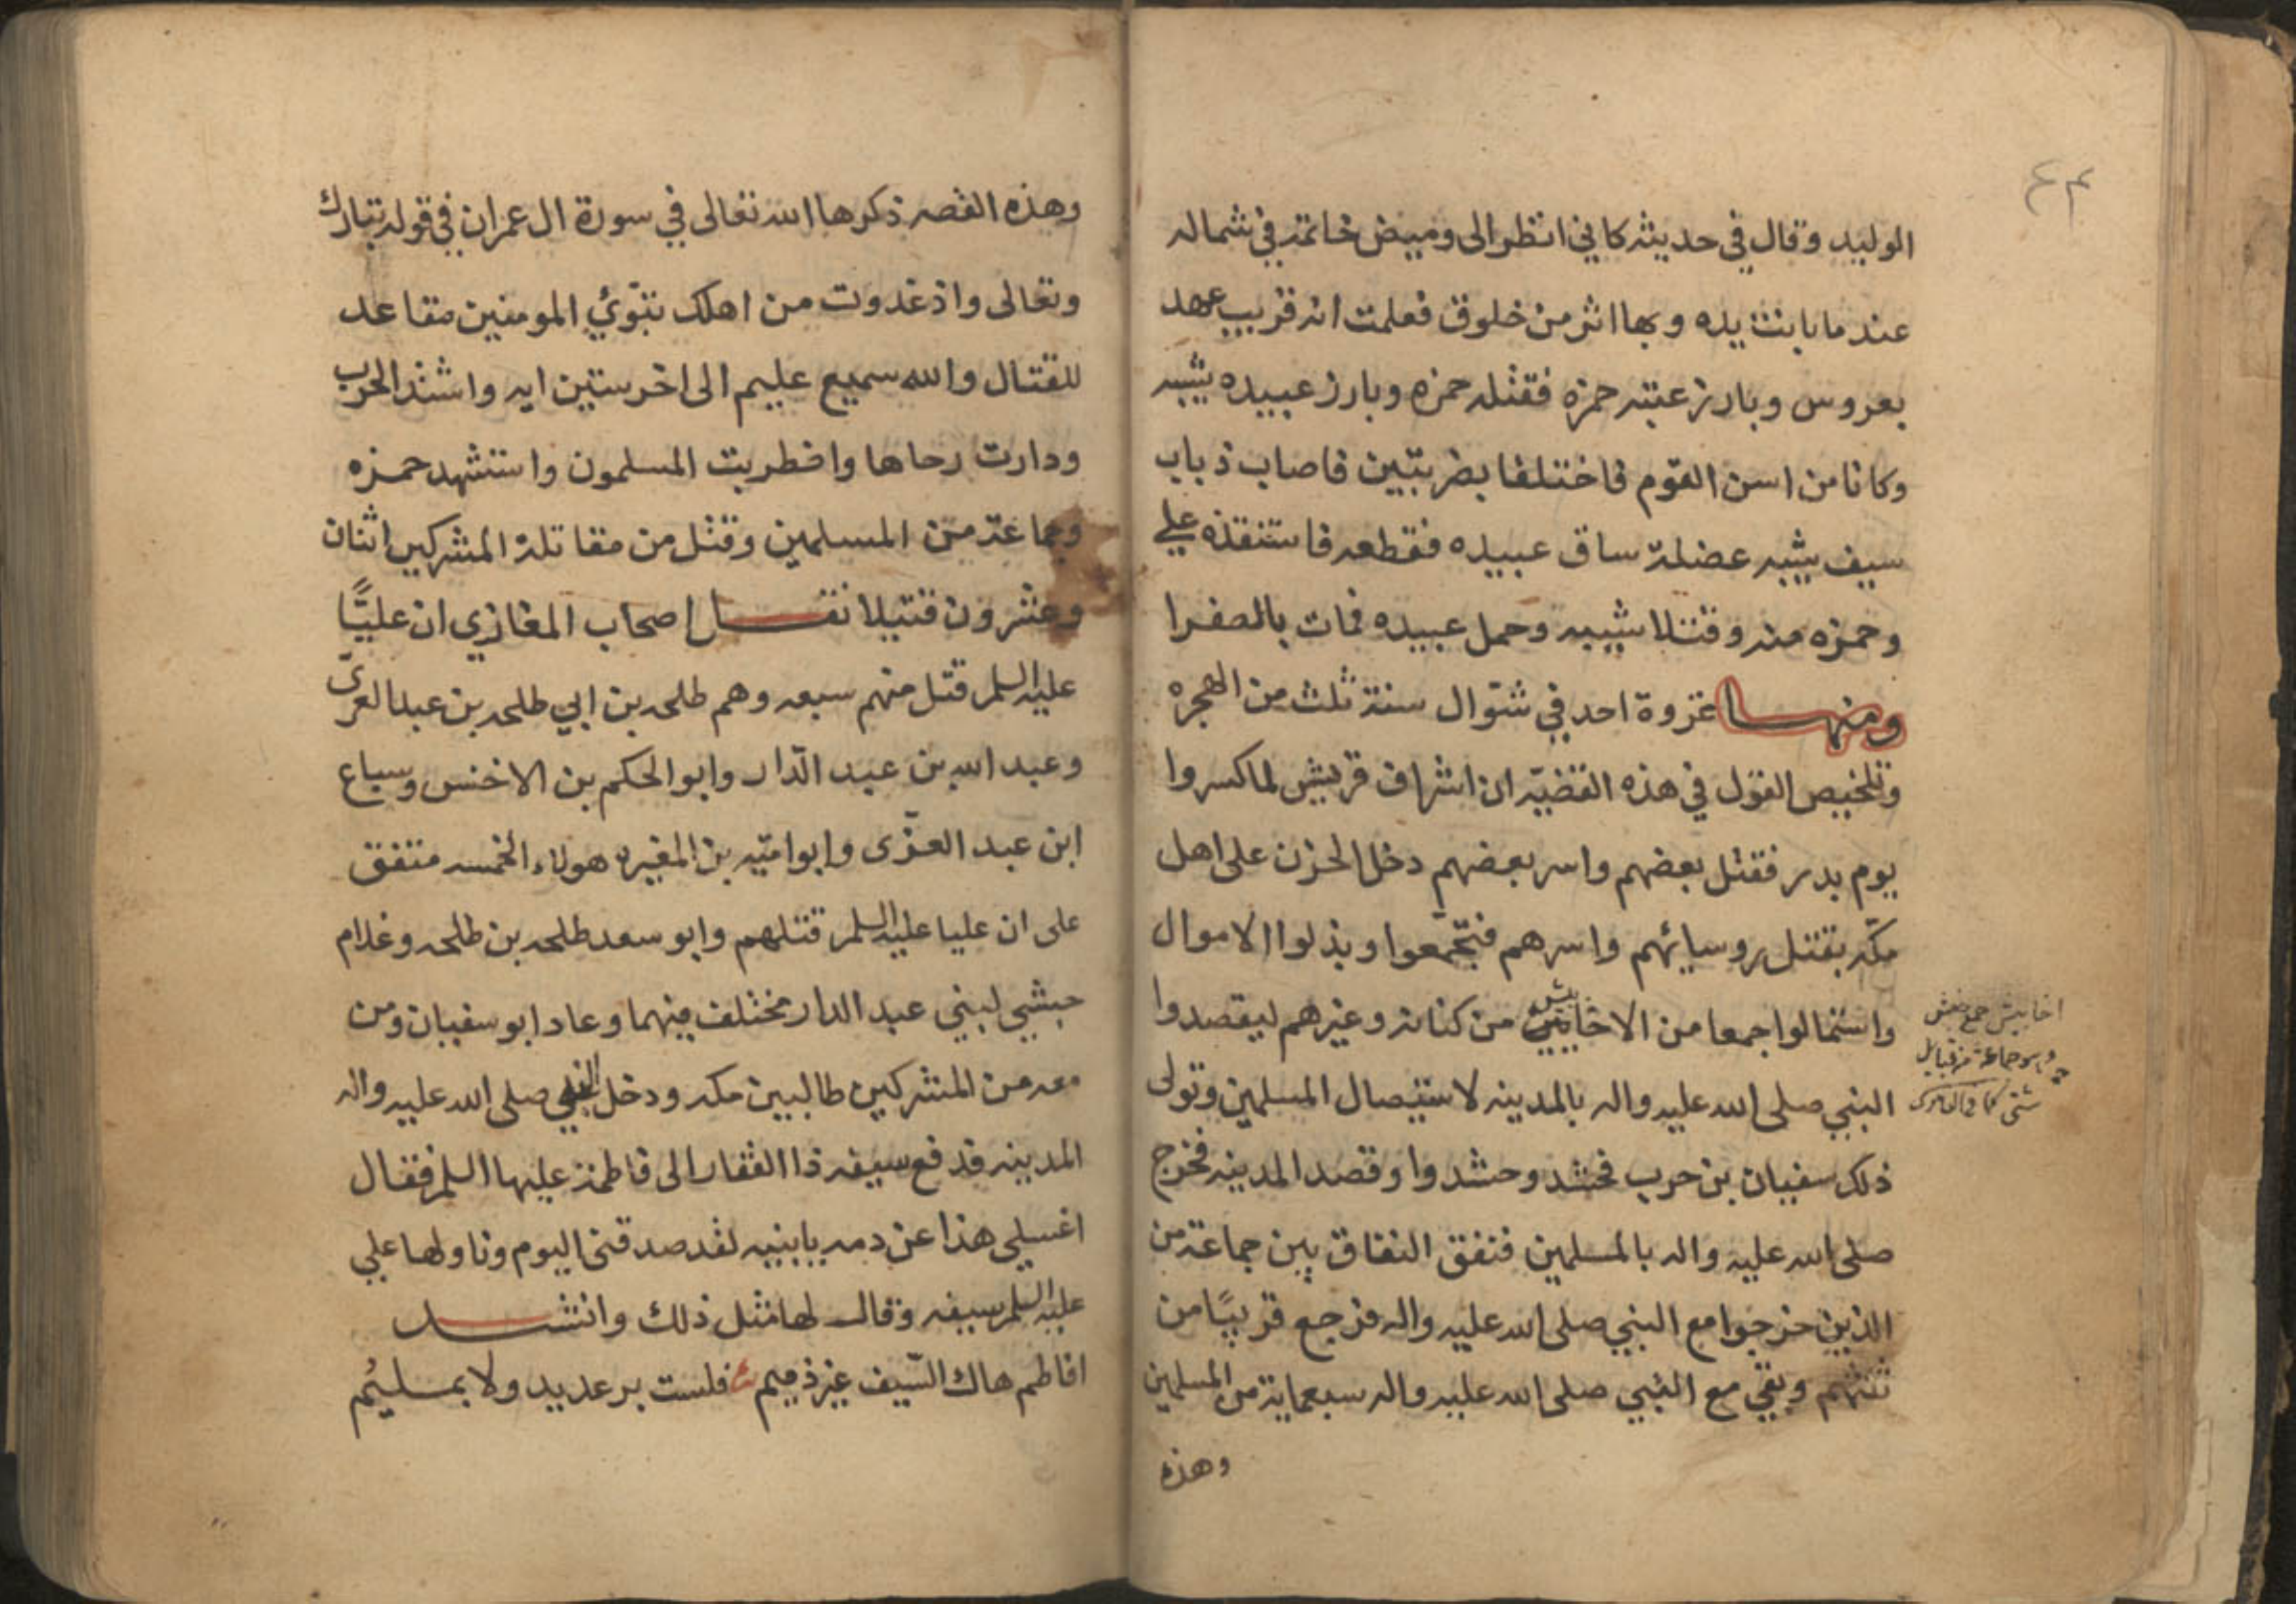 الوليد وقال في حديثه كاني انظر الى وميض خاتمه في شماله
عند ما بانت يده وبها اثر من خلوق فعلمت انه قريب عهد
بعروس وبارز عتبه حمزه فقتله حمزه وبارز عبيده شيبه
وكانا من اسن القوم فاختلفا بضربتين فاصاب ذباب
سيف شيبه عضلة ساق عبيده فقطعه فاستنقذه علي
وحمزه منه وقتلا شيبه وحمل عبيده فمات بالصفرا
ومنها غزوة احد في شوّال سنة ثلث من الهجره
وتلخيص القول في هذه القضيّه ان اشراف قريش لما كسروا
يوم بدر فقتل بعضهم واسر بعضهم دخل الحزن على اهل
مكّه بقتل روسائهم واسرهم فتجمّعوا وبذلوا الاموال
واستمالوا جمعا من الاخابيش من كنانه وغيرهم ليقصدوا
النبي صلى الله عليه واله بالمدينه لاستيصال المسلمين وتولى
ذلك سفيان بن حرب فحشد وحشدوا وقصد المدينه فخرج
صلى الله عليه واله بالمسلمين فنفق النفاق بين جماعة من
الذين خرجوا مع النبي صلى الله عليه واله فرجع قريبًا من
ثلثهم وبقي مع النبي صلى الله عليه واله سبعماية من المسلمين
وهذه
اخابيش جمع
وهو جماعة من قبايل
شتى كما
وهذه القصه ذكرها الله تعالى في سورة ال عمران في قوله تبارك
وتعالى واذ غدوت من اهلك تبوّئ المومنين مقاعد
للقتال والله سميع عليم الى اخر ستين ايه واشتد الحرب
ودارت رحاها واضطربت المسلمون واستشهد حمزه
وجماعة من المسلمين وقتل من مقاتلة المشركين اثنان
وعشرون قتيلا نقل اصحاب المغازي ان عليًّا
عليه السلم قتل منهم سبعه وهم طلحه بن ابي طلحه بن عبد العزّى
وعبد الله بن عبد الدّار وابو الحكم بن الاخنس وسباع
ابن عبد العزّى وابو اميّه بن المغيره هولاء الخمسه متفق
على ان عليا عليه السلم قتلهم وابو سعد طلحه بن طلحه وغلام
حبشي لبني عبد الدار مختلف فيهما وعاد ابو سفيان ومن
معه من المشركين طالبين مكه ودخل النبي صلى الله عليه واله
المدينه فدفع سيفه ذا الفقار الى فاطمة عليها السلم فقال
اغسلي هذا عن دمه يا بنيه لقد صدقني اليوم وناولها علي
عليه السلم سيفه وقال لها مثل ذلك وانشد
افاطم هاك السّيف غير ذميم فلست برعديد ولا بمليُم